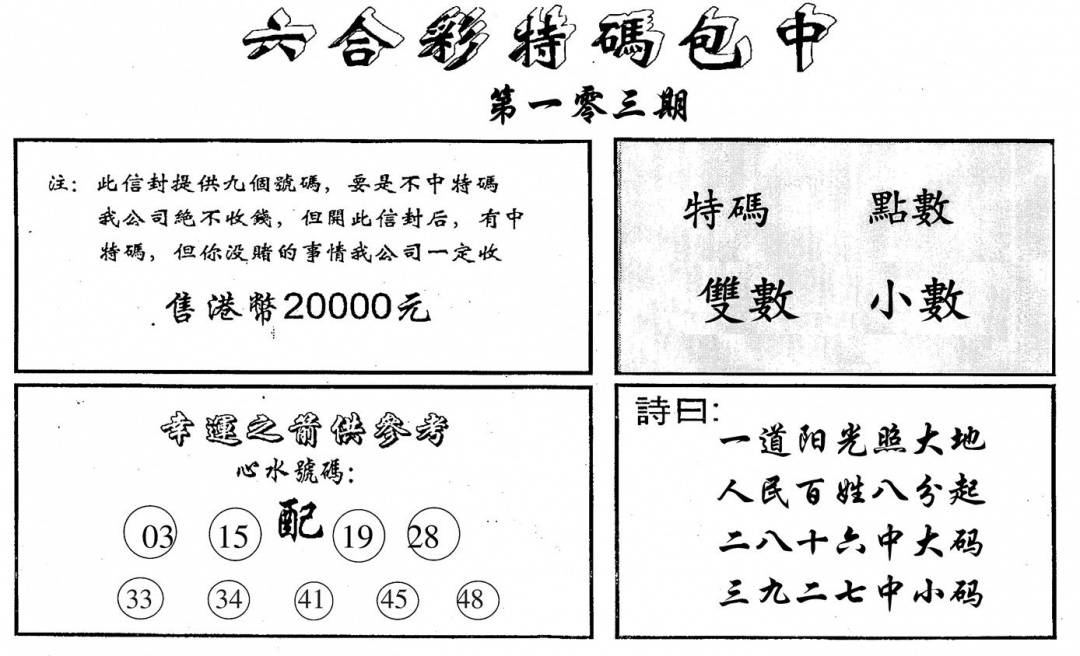 六合彩特碼包中
第一零三期
注：此信封提供九個號碼，要是不中特碼
我公司絕不收錢，但開此信封后，有中
特碼，但你没賭的事情我公司一定收
售港幣20000元
特碼 點數
雙數 小數
幸運之箭供參考
心水號碼：
配
03 15 19 28
33 34 41 45 48
詩曰：
一道阳光照大地
人民百姓八分起
二八十六中大码
三九二七中小码